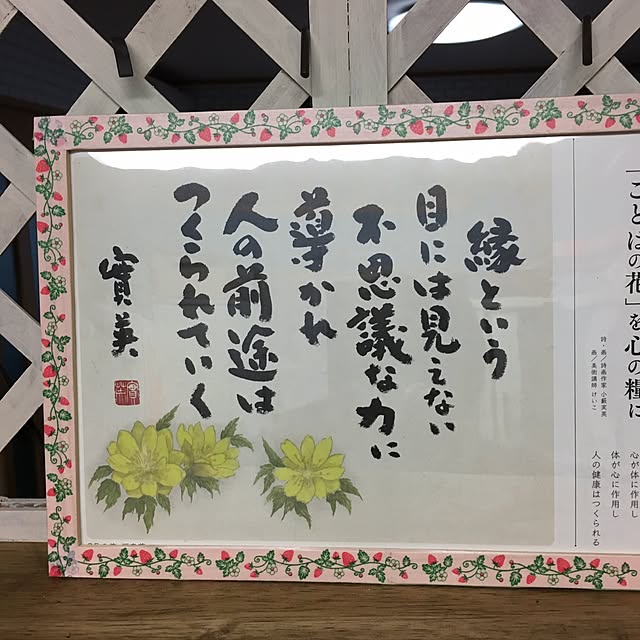 「ことばの花」を心の糧に
詩・画／詩画作家 小藪実英
画／美術講師 けいこ
心が体に作用し
体が心に作用し
人の健康はつくられる
縁という
目には見えない
不思議な力に
導かれ
人の前途は
つくられていく
實英